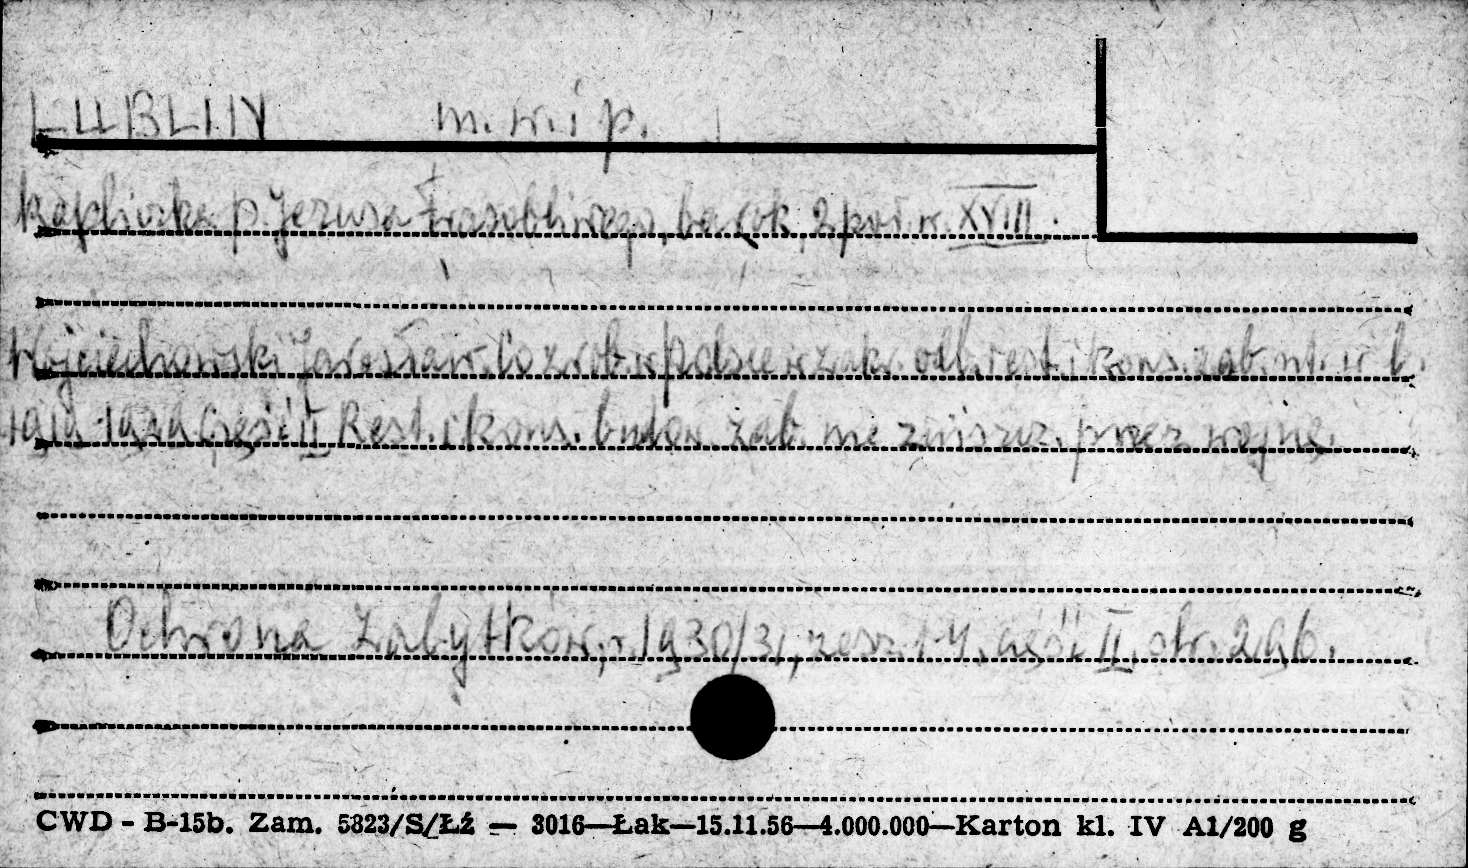 LUBLIN m. w. i p.
Kapliczka p. Jezusa Frasobliwego, barok, 2 poł. w. XVIII.
Wojciechowski Jarosław. Co zrob. w Polsce w zakr. odb. rest. i kons. zab. nt. w l.
1919-1929 Część II Rest. i kons. budow. zab. nie zniszcz. przez wojnę.
Ochrona Zabytków, r. 1930/31, zesz. 1-4, część II, str. 296.
CWD - B-15b. Zam. 5823/S/Łź — 3016—Łak—15.11.56—4.000.000—Karton kl. IV A1/200 g